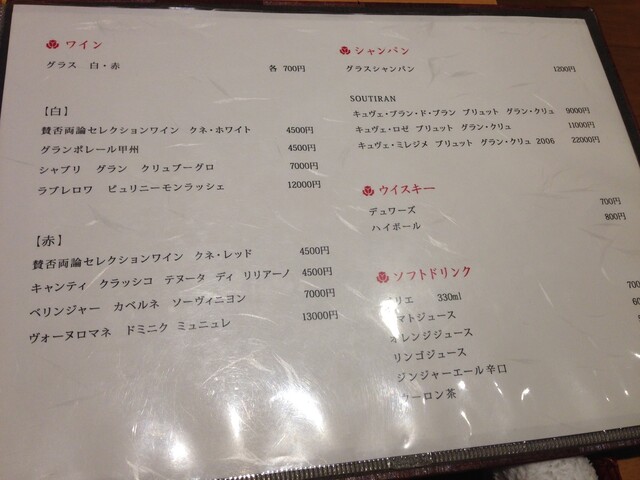 ワイン
グラス 白・赤 各 700円
【白】
賛否両論セレクションワイン クネ・ホワイト 4500円
グランポレール甲州 4500円
シャブリ グラン クリュブーグロ 7000円
ラブレロワ ピュリニーモンラッシェ 12000円
【赤】
賛否両論セレクションワイン クネ・レッド 4500円
キャンティ クラッシコ テヌータ ディ リリアーノ 4500円
ベリンジャー カベルネ ソーヴィニヨン 7000円
ヴォーヌロマネ ドミニク ミュニュレ 13000円
シャンパン
グラスシャンパン 1200円
SOUTIRAN
キュヴェ・ブラン・ド・ブラン ブリュット グラン・クリュ 9000円
キュヴェ・ロゼ ブリュット グラン・クリュ 11000円
キュヴェ・ミレジメ ブリュット グラン・クリュ 2006 22000円
ウイスキー
デュワーズ 700円
ハイボール 800円
ソフトドリンク
リエ 330ml 700
マトジュース 60
オレンジジュース
リンゴジュース
ジンジャーエール辛口
ーロン茶